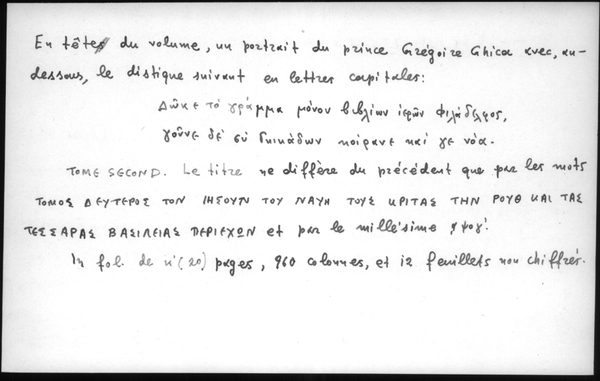 En tête du volume, un portrait du prince Grégoire Ghica avec, au-
dessous, le distique suivant en lettres capitales:
Δῶκε τὸ γράμμα μόνον βιβλίων ἱερῶν Φιλάδελφος,
γοῦνε δὲ σὺ δικάδων κοίρανε καί γε νόα.
TOME SECOND. Le titre ne diffère du précédent que par les mots
ΤΟΜΟΣ ΔΕΥΤΕΡΟΣ ΤΟΝ ΙΗΣΟΥΝ ΤΟΥ ΝΑΥΗ ΤΟΥΣ ΚΡΙΤΑΣ ΤΗΝ ΡΟΥΘ ΚΑΙ ΤΑΣ
ΤΕΣΣΑΡΑΣ ΒΑΣΙΛΕΙΑΣ ΠΕΡΙΕΧΩΝ et par le millésime
In fol. de κ' (20) pages, 960 colonnes, et 12 feuillets non chiffrés.